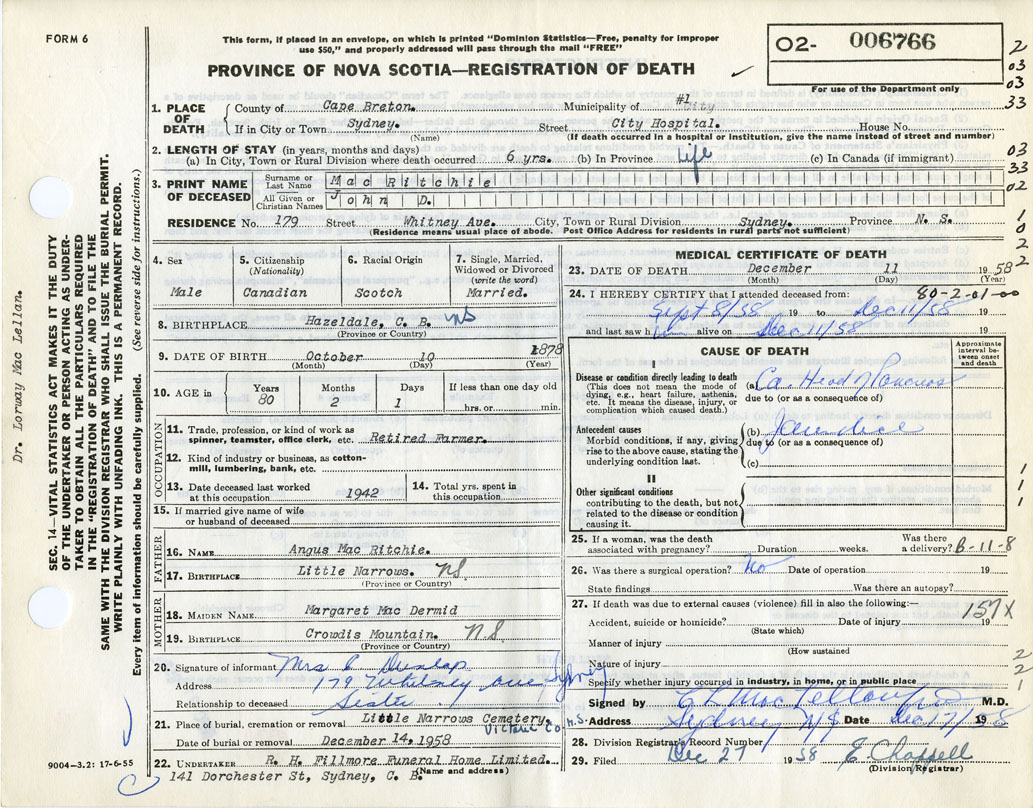 FORM 6
This form, if placed in an envelope, on which is printed "Dominion Statistics—Free, penalty for improper
use $50," and properly addressed will pass through the mail "FREE"
O2- 006766
For use of the Department only
PROVINCE OF NOVA SCOTIA—REGISTRATION OF DEATH
2
03
03
33
1. PLACE OF DEATH
County of Cape Breton. Municipality of #1 City
If in City or Town Sydney. Street City Hospital. House No.
(Name) (If death occurred in a hospital or institution, give the name instead of street and number)
2. LENGTH OF STAY (in years, months and days)
(a) In City, Town or Rural Division where death occurred 6 yrs. (b) In Province Life (c) In Canada (if immigrant)
03
33
02
3. PRINT NAME OF DECEASED
Surname or Last Name MacRitchie
All Given or Christian Names John D.
RESIDENCE No. 179 Street Whitney Ave. City, Town or Rural Division Sydney. Province N. S.
(Residence means usual place of abode. Post Office Address for residents in rural parts not sufficient)
1
0
2
2
4. Sex
Male
5. Citizenship
(Nationality)
Canadian
6. Racial Origin
Scotch
7. Single, Married,
Widowed or Divorced
(write the word)
Married.
8. BIRTHPLACE Hazeldale, C. B. NS
(Province or Country)
9. DATE OF BIRTH October 10 1878
(Month) (Day) (Year)
10. AGE in
Years
80
Months
2
Days
1
If less than one day old
hrs. or min.
OCCUPATION
11. Trade, profession, or kind of work as
spinner, teamster, office clerk, etc. Retired Farmer.
12. Kind of industry or business, as cotton-
mill, lumbering, bank, etc.
13. Date deceased last worked
at this occupation 1942
14. Total yrs. spent in
this occupation
15. If married give name of wife
or husband of deceased
FATHER
16. NAME Angus Mac Ritchie.
17. BIRTHPLACE Little Narrows. NS
(Province or Country)
MOTHER
18. MAIDEN NAME Margaret Mac Dermid
19. BIRTHPLACE Crowdis Mountain. N.S
(Province or Country)
20. Signature of informant Mrs C Dunlap
Address 179 Whitney Ave Sydney
Relationship to deceased Sister
21. Place of burial, cremation or removal Little Narrows Cemetery,
Victoria Co N.S.
Date of burial or removal December 14, 1958
22. UNDERTAKER R. H. Fillmore Funeral Home Limited.
141 Dorchester St, Sydney, C. B.
(Name and address)
MEDICAL CERTIFICATE OF DEATH
23. DATE OF DEATH December 11 1958
(Month) (Day) (Year)
24. I HEREBY CERTIFY that I attended deceased from: 80-2-01-00
Sept 8/58 19 to Dec 11/58 19
and last saw him alive on Dec 11/58 19
CAUSE OF DEATH
Approximate
interval be-
tween onset
and death
I
Disease or condition directly leading to death
(This does not mean the mode of
dying, e.g., heart failure, asthenia,
etc. It means the disease, injury, or
complication which caused death.)
(a) Ca. Head Pancreas
due to (or as a consequence of)
Antecedent causes
Morbid conditions, if any, giving
rise to the above cause, stating the
underlying condition last.
(b) Jaundice
due to (or as a consequence of)
(c)
II
Other significant conditions
contributing to the death, but not
related to the disease or condition
causing it.
1
1
1
25. If a woman, was the death
associated with pregnancy? Duration weeks. Was there
a delivery? B-11-8
26. Was there a surgical operation? No Date of operation 19
State findings Was there an autopsy?
27. If death was due to external causes (violence) fill in also the following:—
Accident, suicide or homicide? Date of injury 19 157X
(State which)
Manner of injury
(How sustained
Nature of injury
Specify whether injury occurred in industry, in home, or in public place
2
2
1
Signed by M.D.
Address Sydney NS Date Dec 17/1958
28. Division Registrar's Record Number
29. Filed Dec 27 1958 E Chappell
(Division Registrar)
9004—3.2: 17-6-55
Dr. Lorway Mac Lellan.
SEC. 14—VITAL STATISTICS ACT MAKES IT THE DUTY
OF THE UNDERTAKER OR PERSON ACTING AS UNDER-
TAKER TO OBTAIN ALL THE PARTICULARS REQUIRED
IN THE "REGISTRATION OF DEATH" AND TO FILE THE
SAME WITH THE DIVISION REGISTRAR WHO SHALL ISSUE THE BURIAL PERMIT.
WRITE PLAINLY WITH UNFADING INK. THIS IS A PERMANENT RECORD.
Every item of information should be carefully supplied. (See reverse side for instructions.)